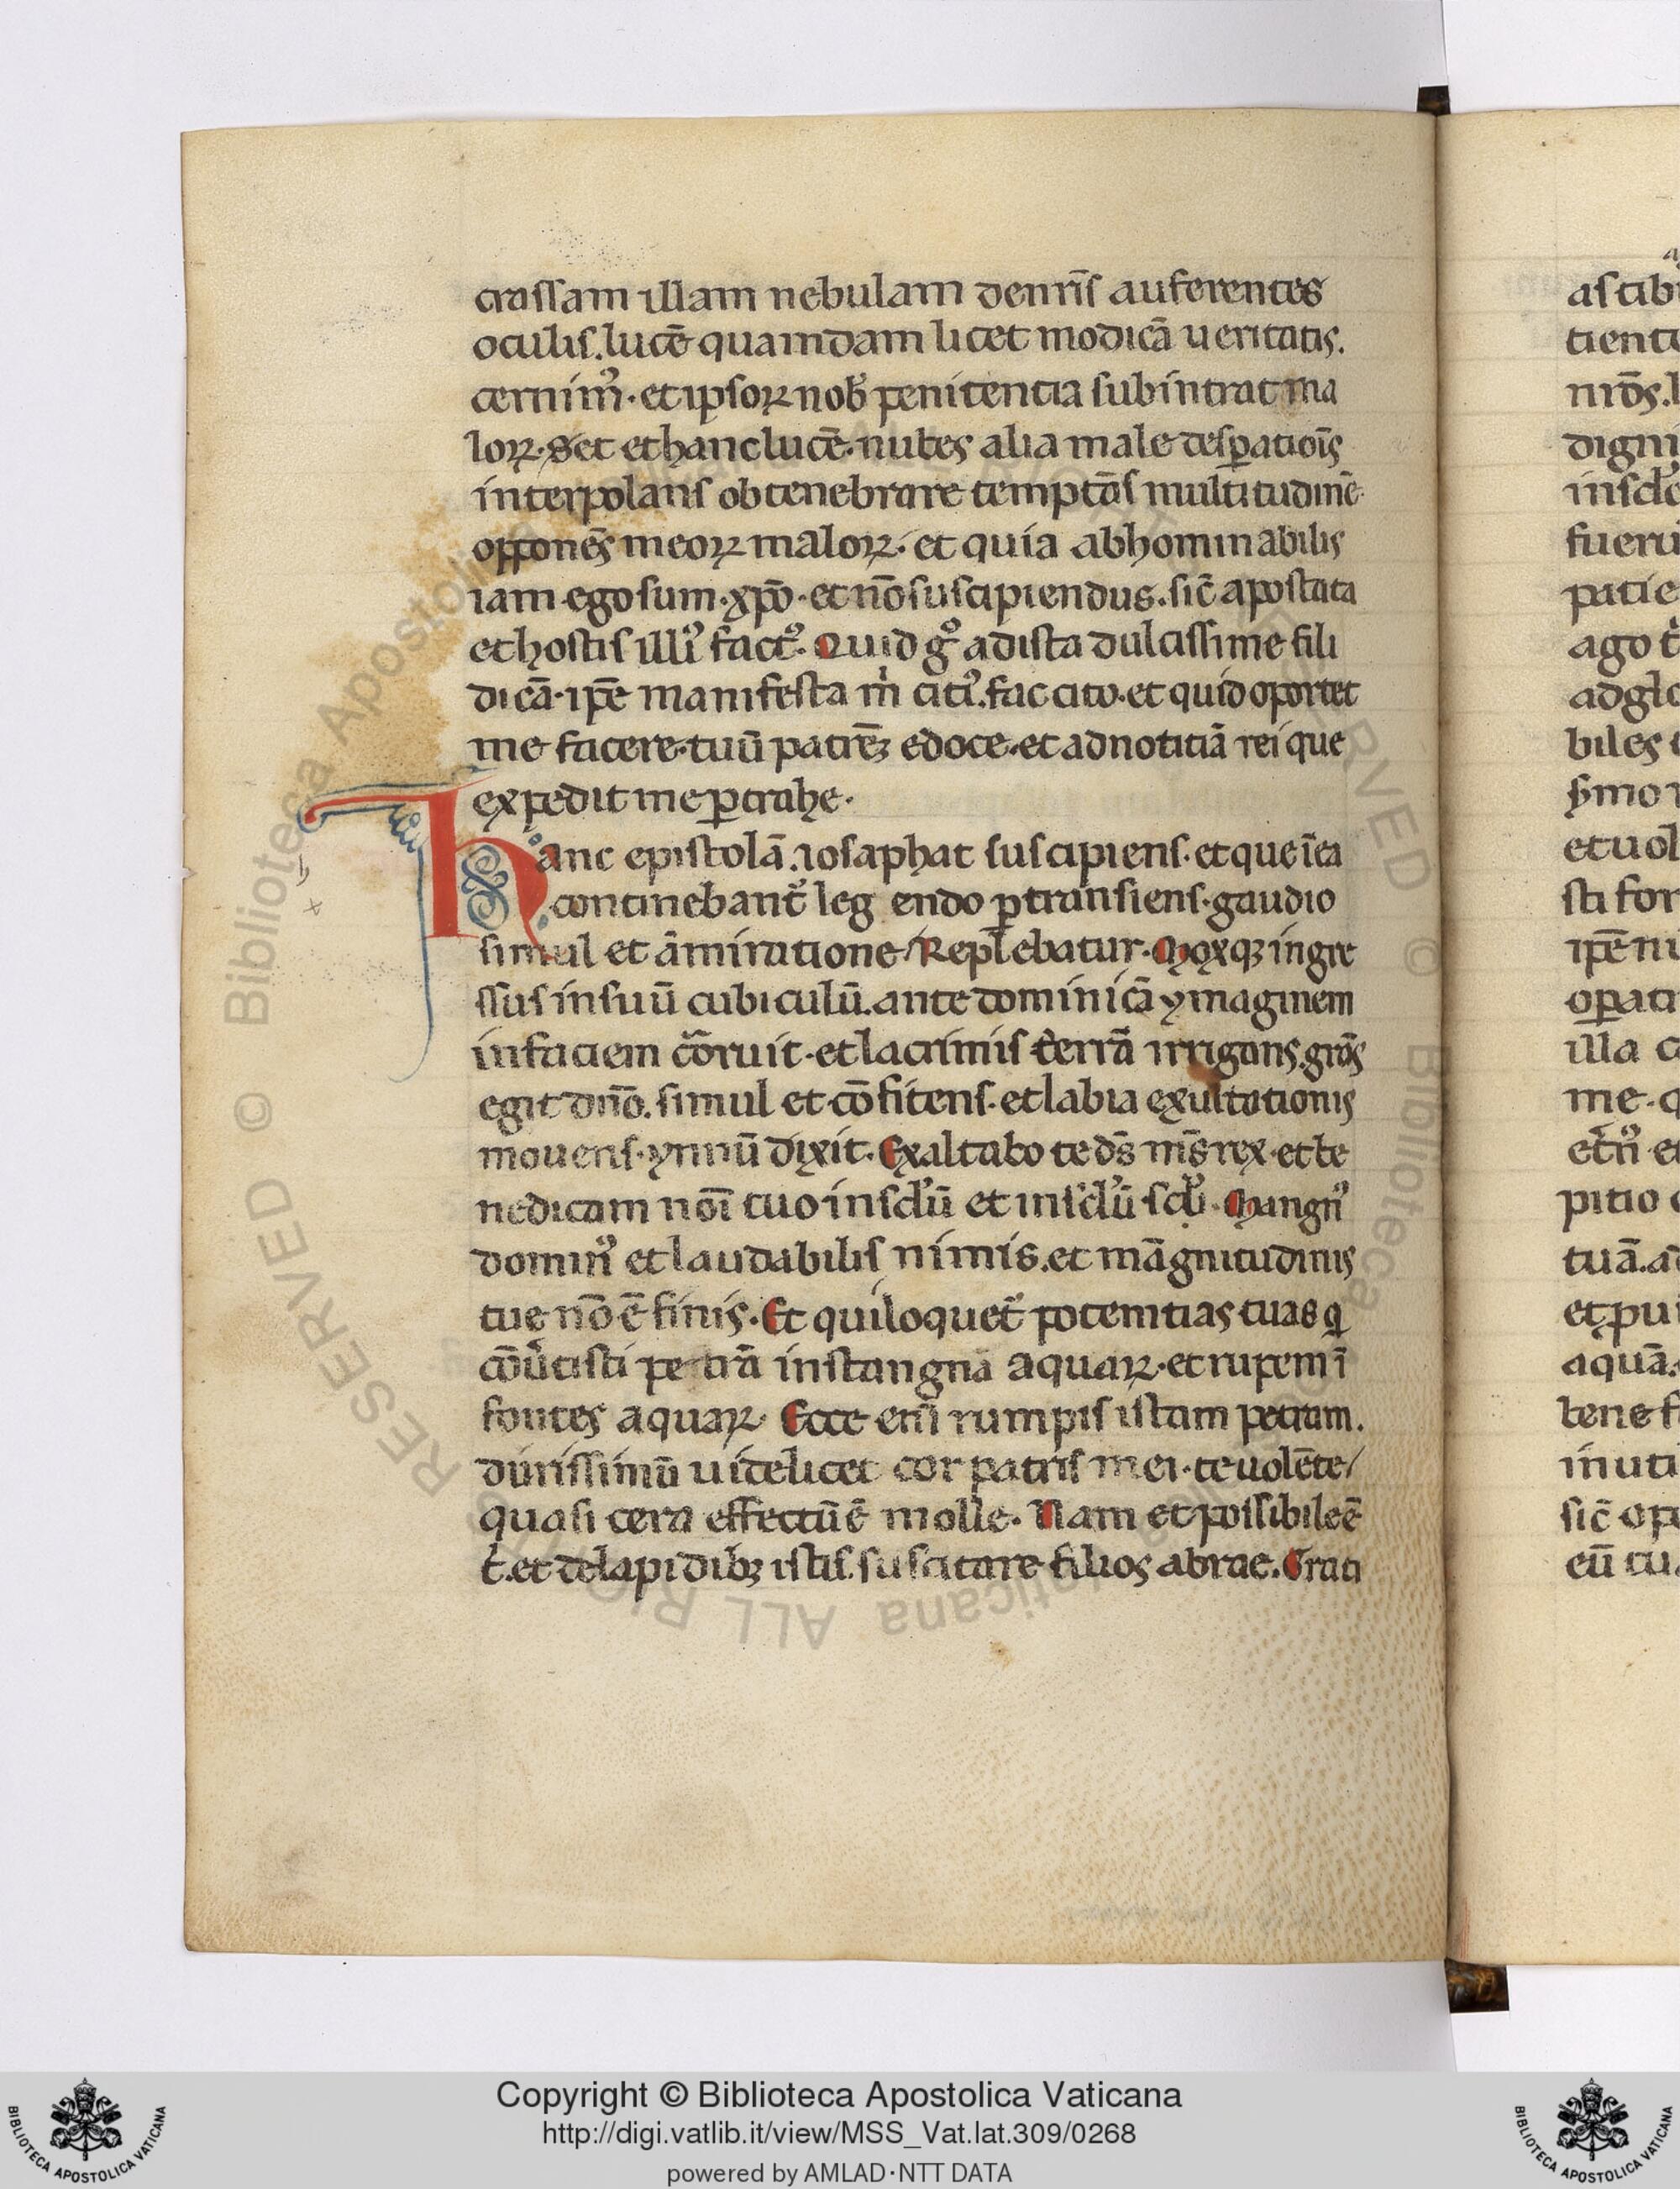 crassam illam nebulam denrīs auferentes
oculis. lucē quamdam licet modicā ueritatis.
cernimꝰ. et ipsoꝝ nob̄ penitentia subintrat ma
loꝝ. Set et hanc lucē. nubes alia male desꝑatiōis
interpolans obtenebrare temptās multitudinē
opponēs meoꝝ maloꝝ. et quia abhominabilis
iam ego sum. xp̄o. et nō suscipiendus. sic̄ apostata
et hostis illiꝰ factꝰ. Quid gͦ ad ista dulcissime fili
dicā. ip̄e manifesta ṁ citiꝰ. fac cito. et quid oportet
me facere. tuū patrē edoce. et ad notitiā rei que
expedit me ꝑtrahe.
Hanc epistolā. iosaphat suscipiens. et que ī ea
continebant̄ leg endo ꝑtransiens. gaudio
simul et āmiratione Replebatur. Moxqꝫ ingre
ssus in suū cubiculū. ante dominicā ymaginem
in faciem cōruit. et lacrimis terrā irrigans. grās
egit dn̄o. simul et cōfitens. et labia exultationis
mouens. ymnū dixit. Exaltabo te ds̄ ms̄ rex. et be
nedicam noī tuo in sclū et in sclū scłi. Mangnꝰ
dominꝰ et laudabilis nimis. et māgnitudinis
tue nō ē finis. Et qui loquet̄ potemtias tuas q
cōutisti petrā in stangna aquaꝝ. et rupem ī
fontes aquaꝝ. Ecce enī rumpis istam petram.
durissimū uidelicet cor patris mei. te uolēte
quasi cera effectū ē molle. Nam et possibile ē
t̄. et de lapidibꝫ istis. suscitare filios abrae. Grati
Copyright © Biblioteca Apostolica Vaticana
http://digi.vatlib.it/view/MSS_Vat.lat.309/0268
powered by AMLAD·NTT DATA